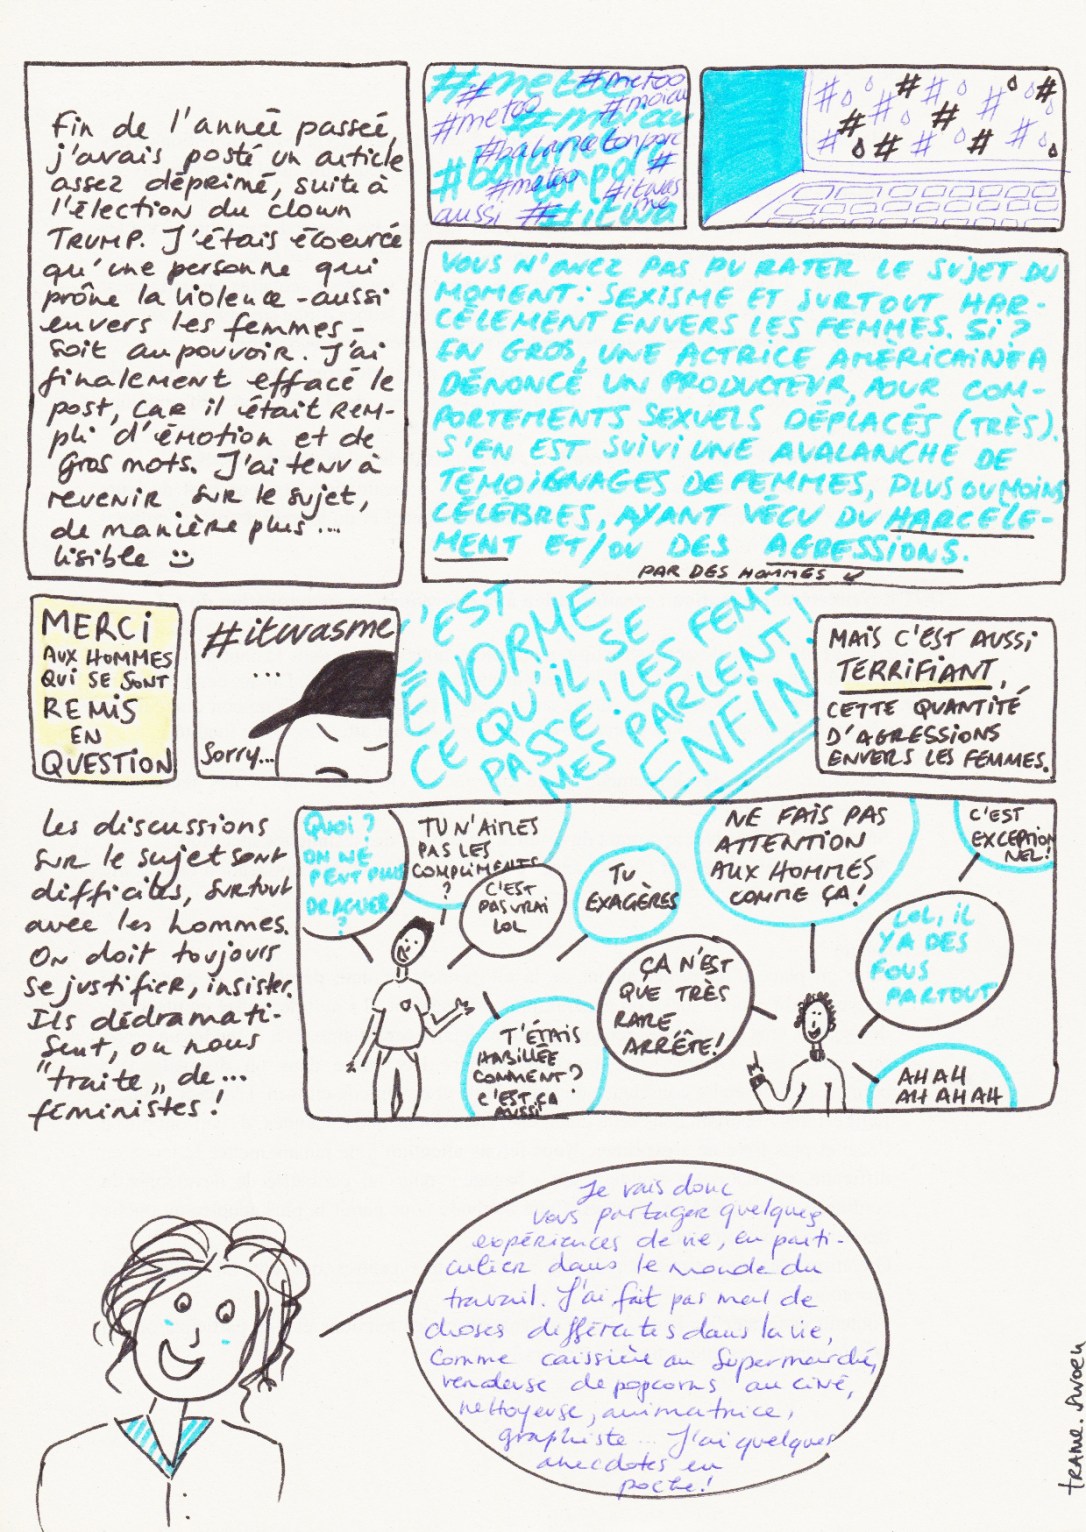 Fin de l'année passée,
j'avais posté un article
assez déprimé, suite à
l'élection du clown
TRUMP. J'étais écoeurée
qu'une personne qui
prône la violence - aussi
envers les femmes -
soit au pouvoir. J'ai
finalement effacé le
post, car il était rem-
pli d'émotion et de
gros mots. J'ai tenu à
revenir sur le sujet,
de manière plus ...
lisible
#metoo
#metoo
#metoo
#moiaussi
#balancetonporc
#metoo
#itwasme
aussi
# # # # #
# # # #
# # # #
VOUS N'AVEZ PAS PU RATER LE SUJET DU
MOMENT : SEXISME ET SURTOUT HAR-
CÈLEMENT ENVERS LES FEMMES. SI ?
EN GROS, UNE ACTRICE AMÉRICAINE A
DÉNONCÉ UN PRODUCTEUR, POUR COM-
PORTEMENTS SEXUELS DÉPLACÉS (TRÈS).
S'EN EST SUIVI UNE AVALANCHE DE
TÉMOIGNAGES DE FEMMES, PLUS OU MOINS
CÉLÈBRES, AYANT VÉCU DU HARCÈLE-
MENT ET/OU DES AGRESSIONS.
PAR DES HOMMES
MERCI
AUX HOMMES
QUI SE SONT
REMIS
EN
QUESTION
#itwasme
...
Sorry...
C'EST
ÉNORME
CE QU'IL SE
PASSE ! LES FEM-
MES PARLENT !
ENFIN
MAIS C'EST AUSSI
TERRIFIANT,
CETTE QUANTITÉ
D'AGRESSIONS
ENVERS LES FEMMES.
Les discussions
sur le sujet sont
difficiles, surtout
avec les hommes.
On doit toujours
se justifier, insister.
Ils dédramati-
sent, ou nous
"traite" de...
féministes !
QUOI ?
ON NE
PEUT PLUS
DRAGUER
?
TU N'AIMES
PAS LES
COMPLIMENTS
?
C'EST
PAS VRAI
LOL
TU
EXAGÈRES
T'ÉTAIS
HABILLÉE
COMMENT ?
C'EST ÇA
AUSSI
NE FAIS PAS
ATTENTION
AUX HOMMES
COMME ÇA !
C'EST
EXCEPTION
NEL !
ÇA N'EST
QUE TRÈS
RARE
ARRÊTE !
LOL, IL
Y A DES
FOUS
PARTOUT
AHAH
AH AHAH
Je vais donc
vous partager quelques
expériences de vie, en parti-
culier dans le monde du
travail. J'ai fait pas mal de
choses différentes dans la vie,
comme caissière au supermarché,
vendeuse de popcorns au ciné,
nettoyeuse, animatrice,
graphiste... J'ai quelques
anecdotes en
poche !
trame.swoen